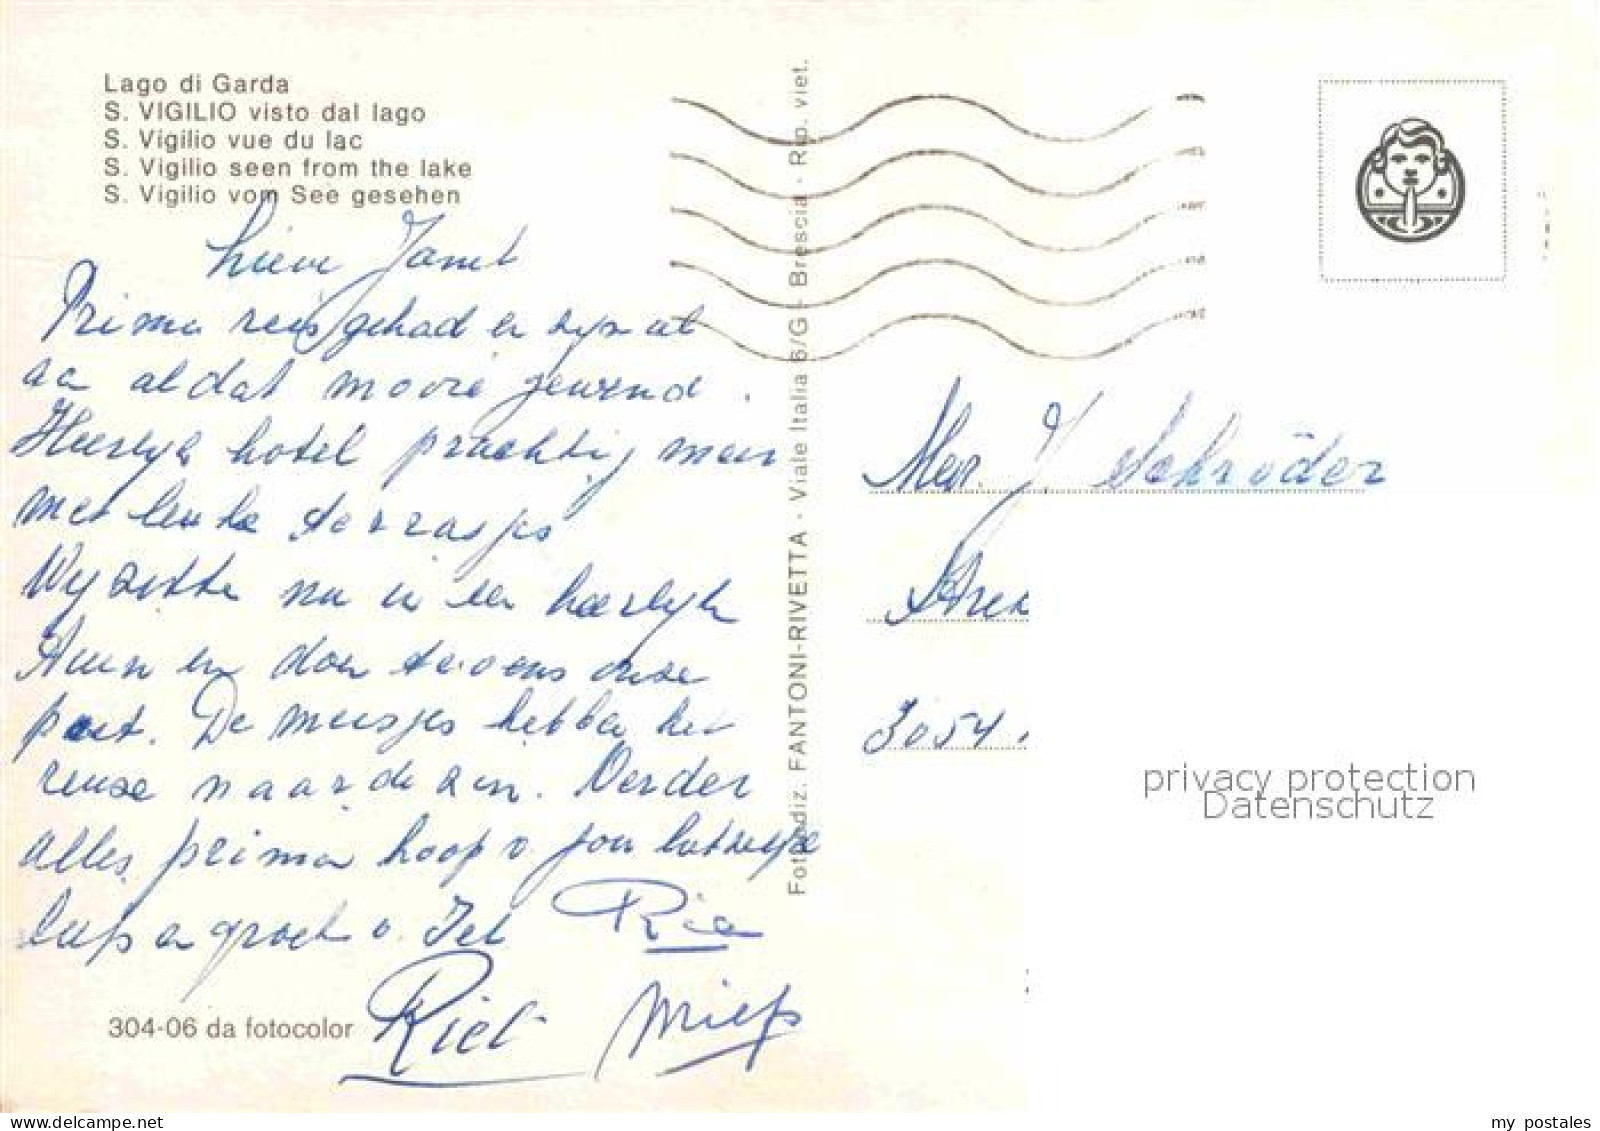 Lago di Garda
S. VIGILIO visto dal lago
S. Vigilio vue du lac
S. Vigilio seen from the lake
S. Vigilio vom See gesehen
Lieve
Prima reis gehad en zijn al
al dat mooie gewend.
Heerlijk hotel prachtig
met leuke terrasjes
Wij zitten nu in een heerlijke
en doen tevens onze
post. De meisjes hebben het
naar de zin. Verder
alles prima hoop v. jou
liefs en groet v. Jet Ria
Riet Miep
304-06 da fotocolor
Fotoediz. FANTONI-RIVETTA - Viale Italia 6/G - Brescia - Rip. viet.
Mevr. J Schröder
3054
privacy protection
Datenschutz
my postales